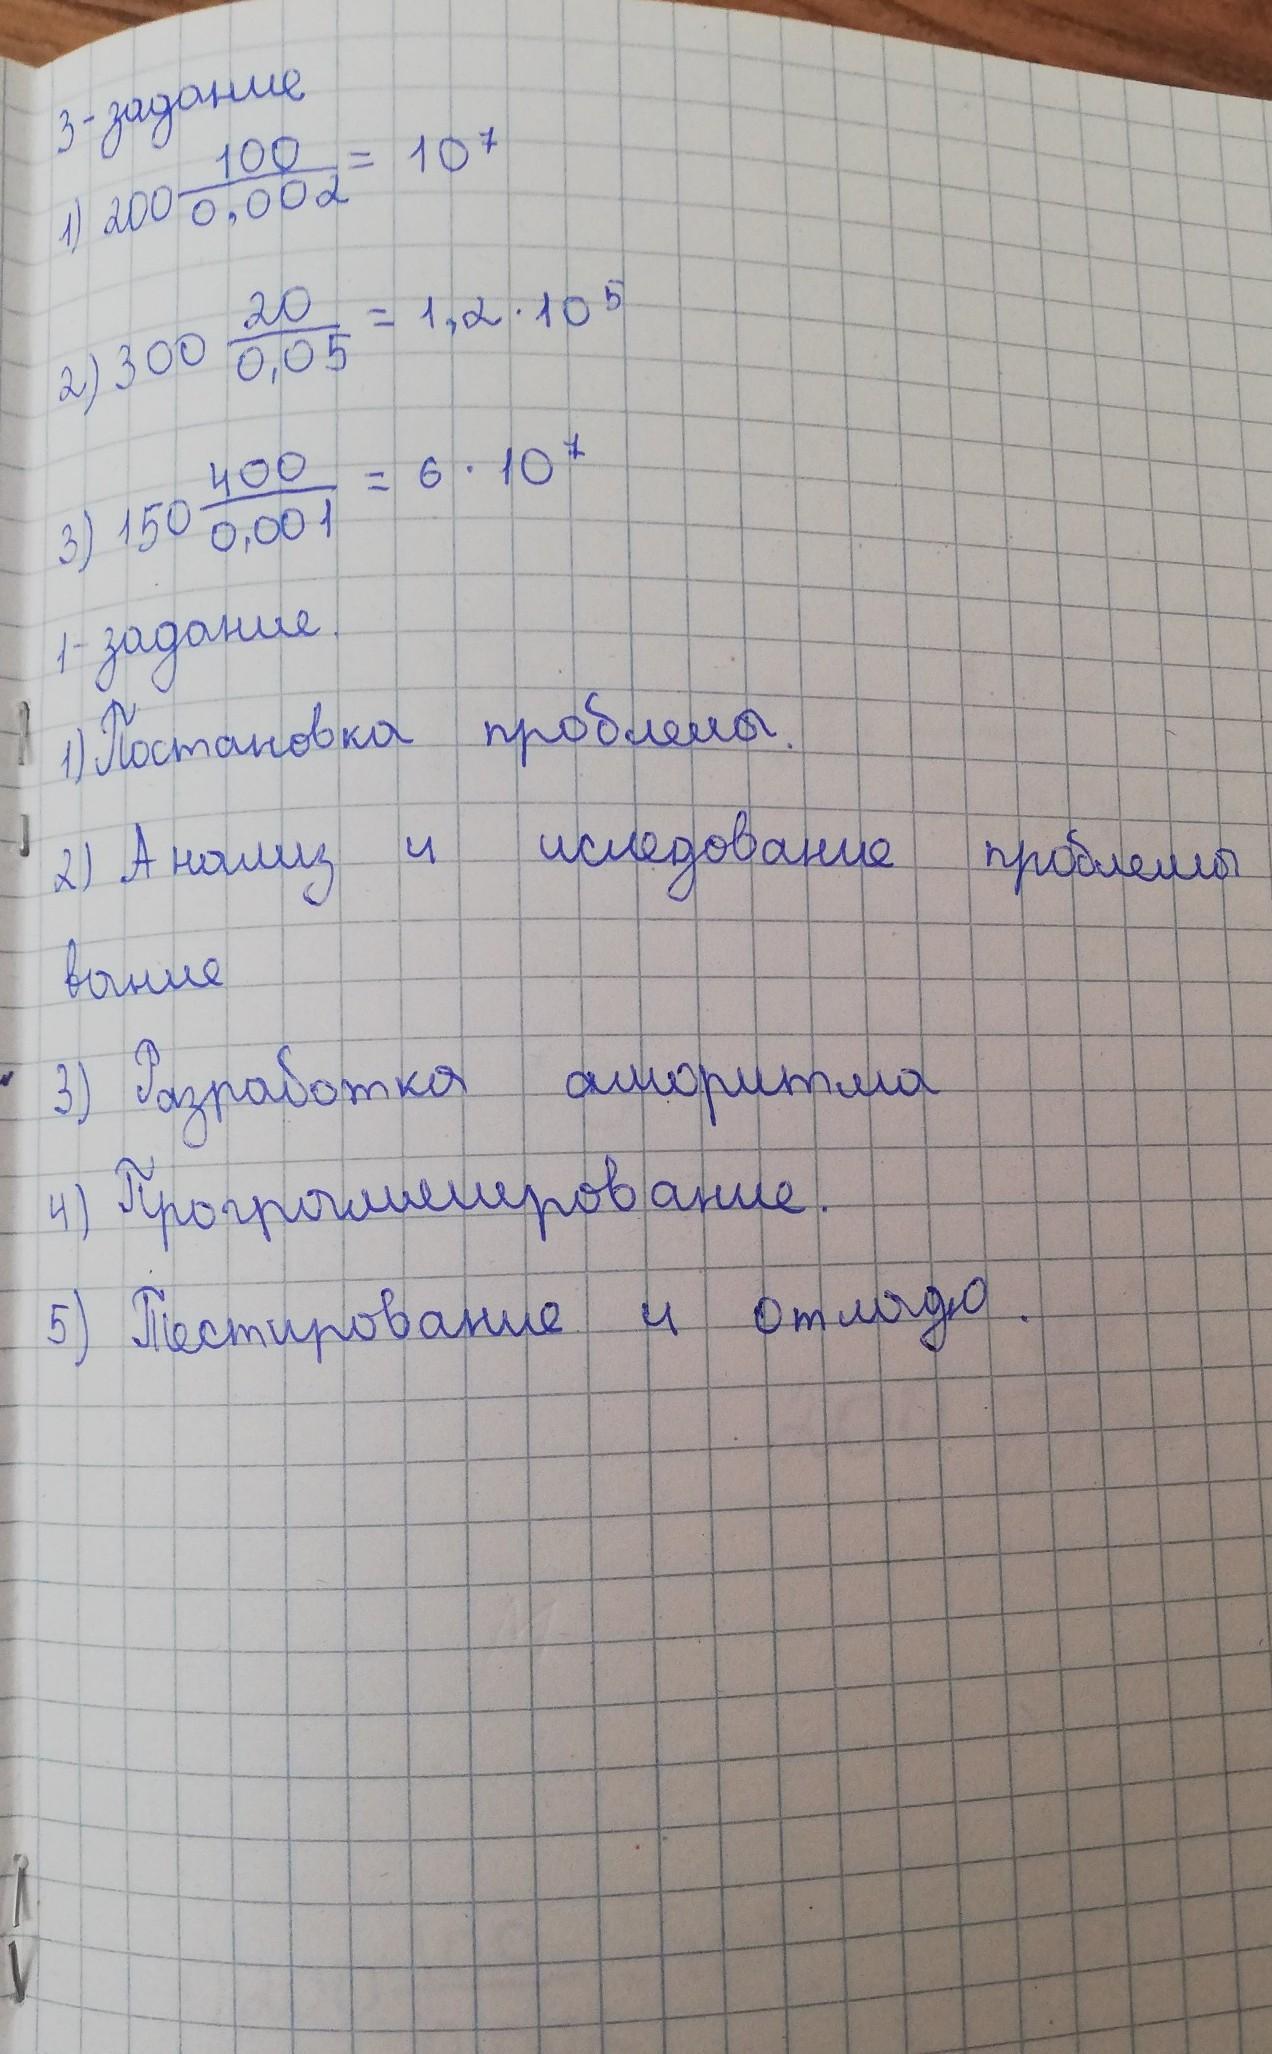 3-задание
1) 200 100/0,002 = 10⁷
2) 300 20/0,05 = 1,2·10⁵
3) 150 400/0,001 = 6·10⁷
1-задание.
1) Постановка проблемы.
2) Анализ и иследование проблемы
вание
3) Разработка алгоритма
4) Программирование.
5) Тестирование и отладю.